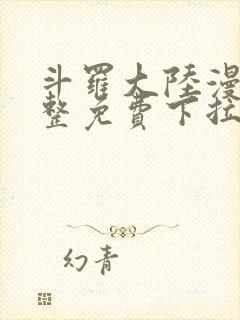 斗羅大陸漫
整免費下拉
幻青